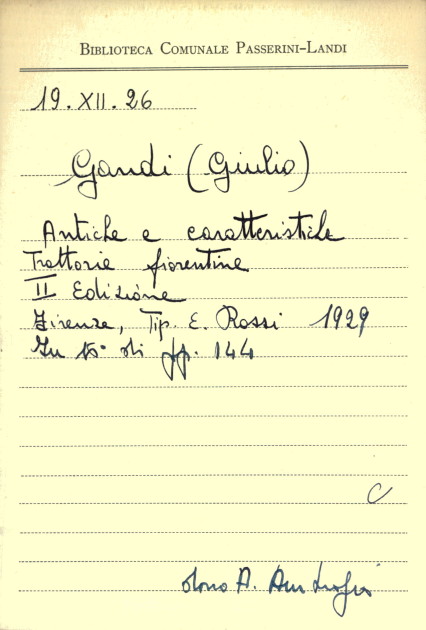 BIBLIOTECA COMUNALE PASSERINI-LANDI
19. XII. 26
Gandi (Giulio)
Antiche e caratteristiche
Trattorie fiorentine
II Edizione
Firenze, Tip. E. Rossi 1929
In di pp. 144
C
dono A.